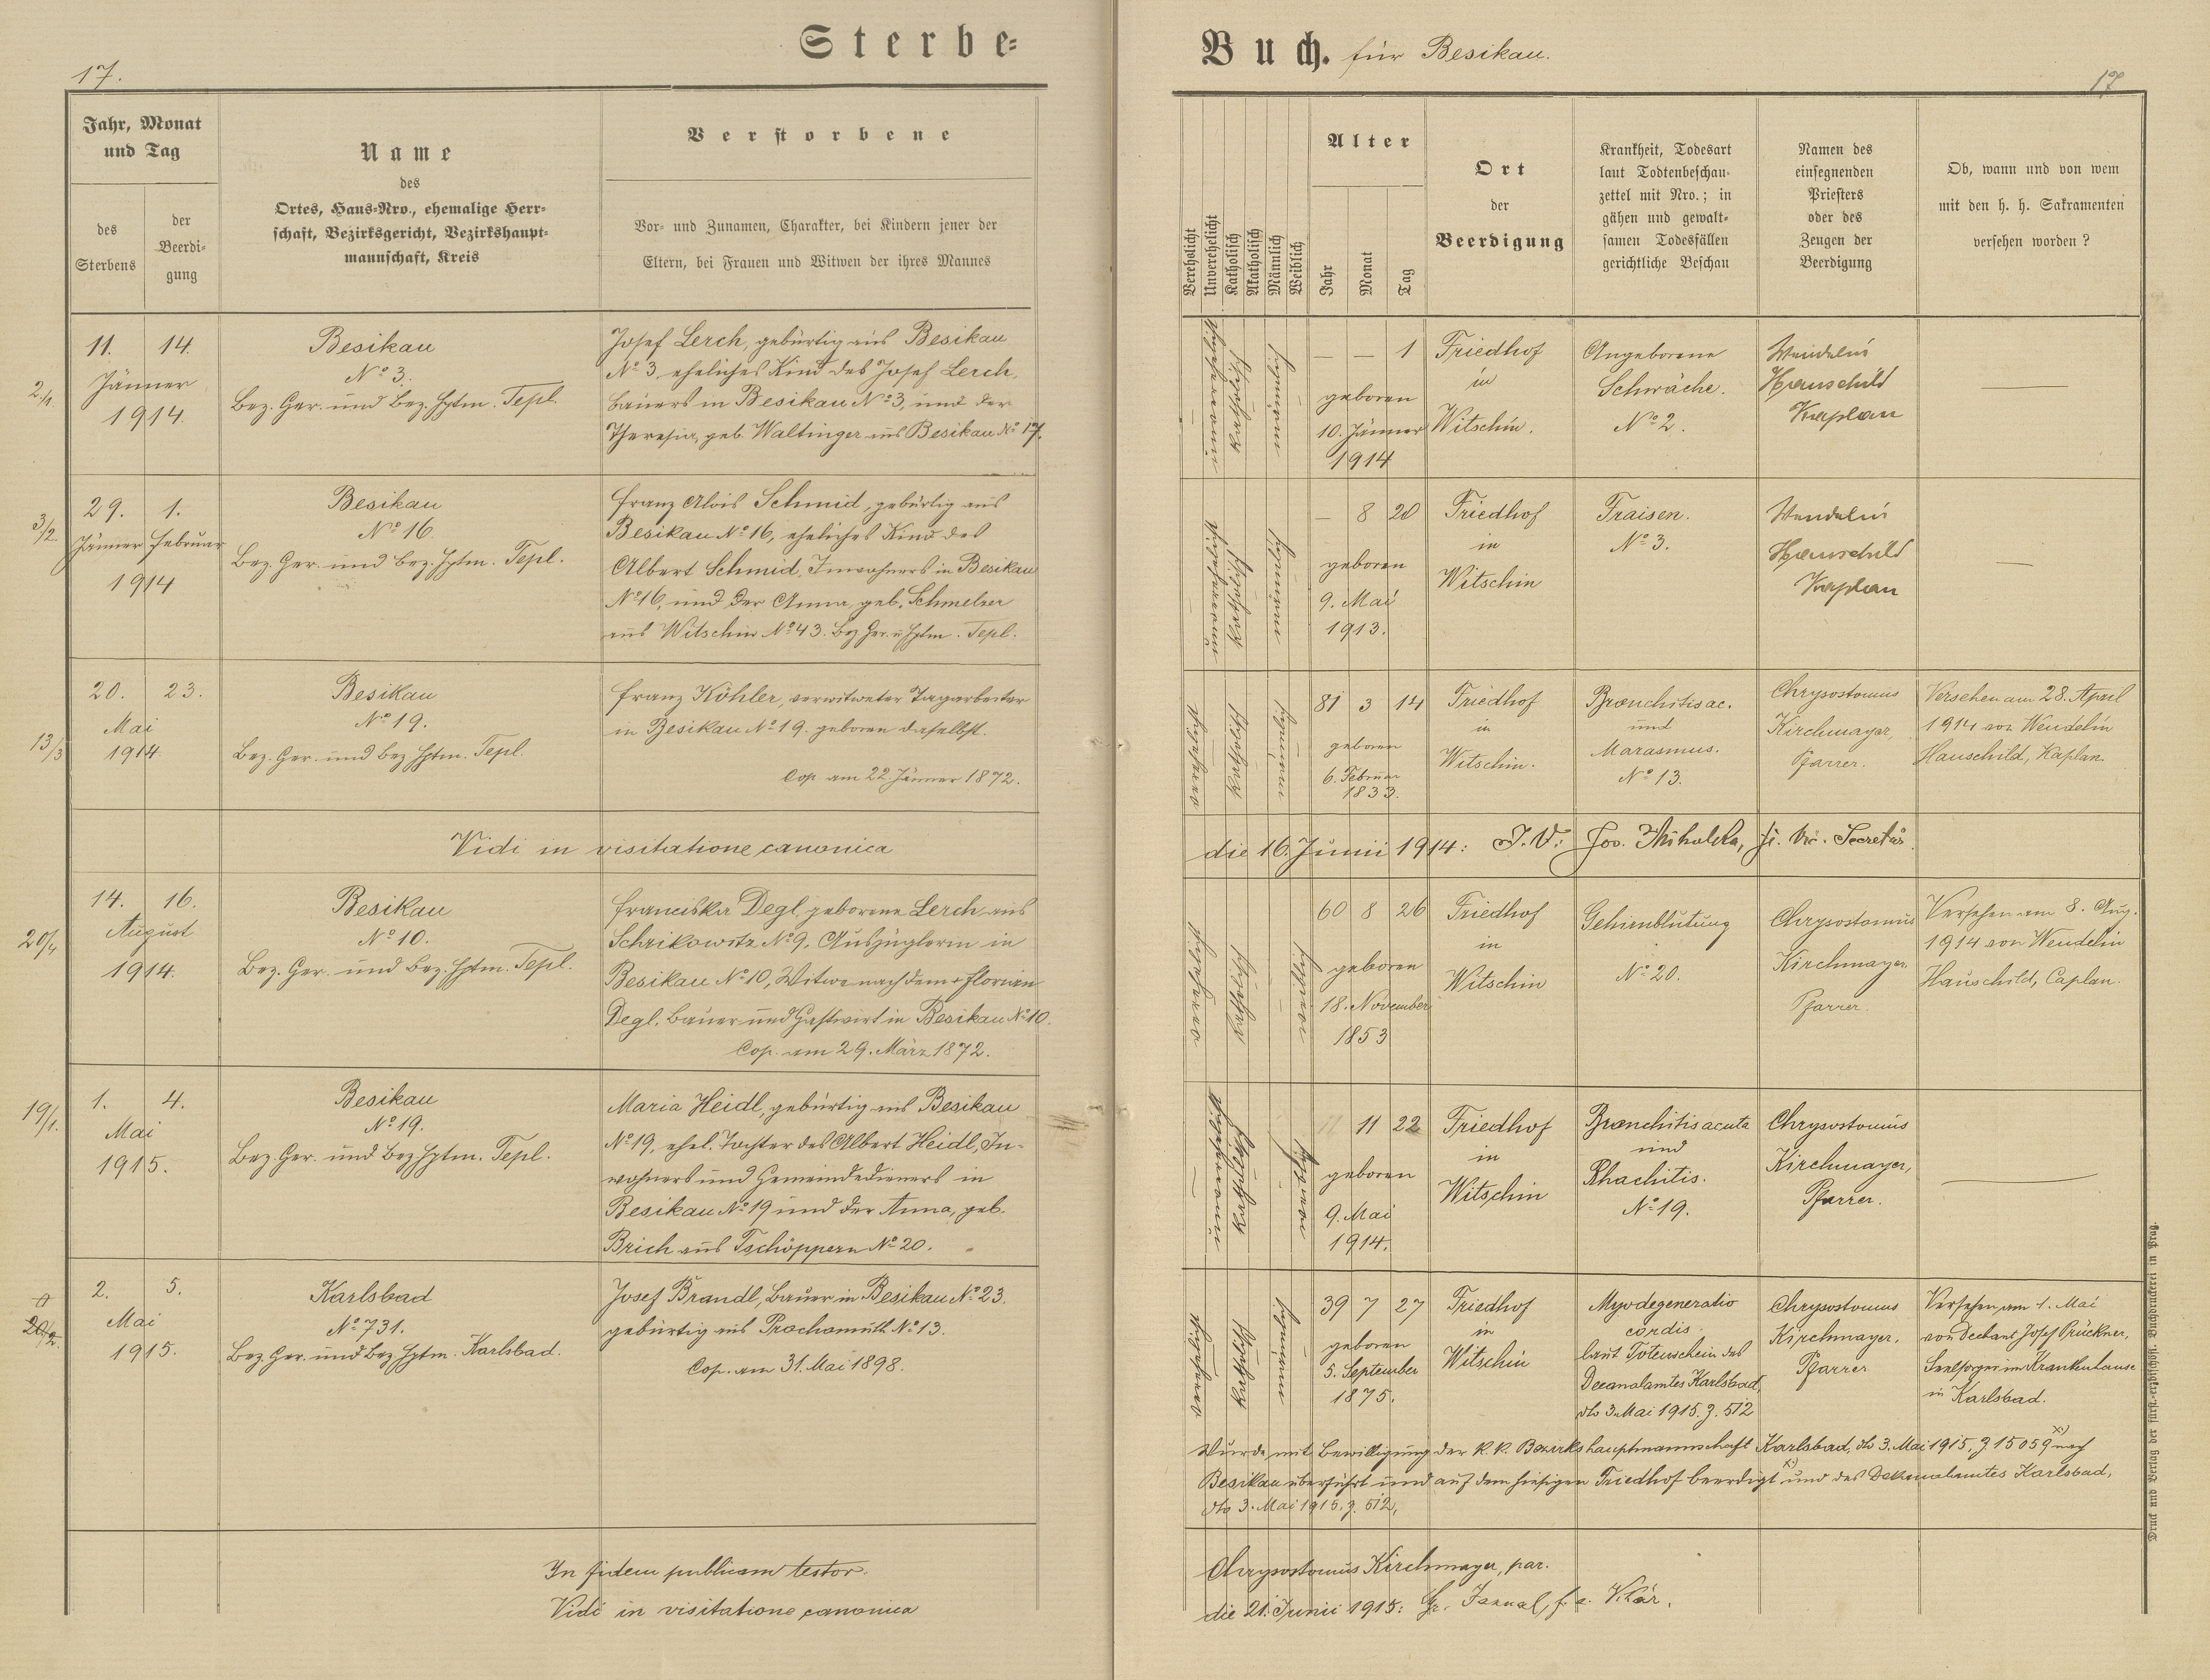 17.
Sterbe-
Buch. für Besikau.
17
Jahr, Monat
und Tag
des
Sterbens
der
Beerdi-
gung
Name
des
Ortes, Haus-Nro., ehemalige Herr-
schaft, Bezirksgericht, Bezirkshaupt-
mannschaft, Kreis
Verstorbene
Vor- und Zunamen, Charakter, bei Kindern jener der
Eltern, bei Frauen und Witwen der ihres Mannes
Verehelicht
Unverehelicht
Katholisch
Akatholisch
Männlich
Weiblich
Alter
Jahr
Monat
Tag
Ort
der
Beerdigung
Krankheit, Todesart
laut Todtenbeschau-
zettel mit Nro.; in
gähen und gewalt-
samen Todesfällen
gerichtliche Beschau
Namen des
einsegnenden
Priesters
oder des
Zeugen der
Beerdigung
Ob, wann und von wem
mit den h. h. Sakramenten
versehen worden?
2/1
11. 14.
Jänner
1914.
Besikau
No 3.
Bez. Ger. und Bez. Hptm. Tepl.
Josef Lerch, gebürtig aus Besikau
No 3, eheliches Kind des Josef Lerch,
Bauers in Besikau No 3, und der
Theresia, geb. Waltinger aus Besikau No 17.
unverehelicht
katholisch
männlich
— — 1
geboren
10. Jänner
1914
Friedhof
in
Witschin.
Angeborene
Schwäche.
No 2.
Wendelin
Hauschild
Kaplan
3/2
29. 1.
Jänner Februar
1914
Besikau
No 16.
Bez. Ger. und Bez. Hptm. Tepl.
Franz Alois Schmid, gebürtig aus
Besikau No 16, eheliches Kind des
Albert Schmid, Inwohners in Besikau
No 16, und der Anna, geb. Schmelzer
aus Witschin No 43. Bez Ger. u Hptm. Tepl.
unverehelicht
katholisch
männlich
— 8 20
geboren
9. Mai
1913.
Friedhof
in
Witschin
Fraisen.
No 3.
Wendelin
Hauschild
Kaplan
13/3
20. 23.
Mai
1914.
Besikau
No 19.
Bez. Ger. und Bez Hptm. Tepl.
Franz Köhler, verwitweter Tagarbeiter
in Besikau No 19. geboren daselbst.
Cop. am 22. Jänner 1872.
verehelicht
katholisch
männlich
81 3 14
geboren
6. Februar
1833.
Friedhof
in
Witschin.
Bronchitis ac.
und
Marasmus.
No 13.
Chrysostomus
Kirchmayer,
Pfarrer.
Versehen am 28. April
1914 von Wendelin
Hauschild, Kaplan.
Vidi in visitatione canonica
die 16. Junii 1914: J. V.: Secretär
20/4
14. 16.
August
1914.
Besikau
No 10.
Bez. Ger. und Bez. Hptm. Tepl.
Franciska Degl, geborene Lerch aus
Schrikowitz No 9, Auszüglerin in
Besikau No 10, Witwe nach dem + Florian
Degl, Bauer und Gastwirt in Besikau No 10.
Cop. am 29. März 1872.
verehelicht
katholisch
weiblich
60 8 26
geboren
18. November
1853
Friedhof
in
Witschin
Gehirnblutung
No 20.
Chrysostomus
Kirchmayer
Pfarrer.
Versehen am 8. Aug.
1914 von Wendelin
Hauschild, Caplan.
19/1.
1. 4.
Mai
1915.
Besikau
No 19.
Bez. Ger. und Bez Hptm. Tepl.
Maria Heidl, gebürtig aus Besikau
No 19, ehel. Tochter des Albert Heidl, In-
wohners und Gemeindedieners in
Besikau No 19 und der Anna, geb.
Brich aus Tschöppern No 20.
unverehelicht
katholisch
weiblich
11 22
geboren
9. Mai
1914.
Friedhof
in
Witschin
Bronchitis acuta
und
Rhachitis.
No 19.
Chrysostomus
Kirchmayer,
Pfarrer.
2. 5.
Mai
1915.
Karlsbad
No 731.
Bez. Ger. und Bez. Hptm. Karlsbad.
Josef Brandl, Bauer in Besikau No 23.
gebürtig aus Prochomuth No 13.
Cop. am 31. Mai 1898.
verehelicht
katholisch
männlich
39 7 27
geboren
5. September
1875.
Friedhof
in
Witschin
Myodegeneratio
cordis.
laut Totenschein des
Decanalamtes Karlsbad,
dto 3. Mai 1915. Z. 512
Chrysostomus
Kirchmayer,
Pfarrer
Versehen am 1. Mai
von Dechant Josef Brückner,
Seelsorger im Krankenhause
in Karlsbad.
Wurde mit Bewilligung der k. k. Bezirkshauptmannschaft Karlsbad, dto 3. Mai 1915, Z 15059 x) nach
Besikau überführt und auf dem hiesigen Friedhof beerdigt x) und des Dekanalamtes Karlsbad,
dto 3. Mai 1915. Z. 512,
In fidem publicam testor.
Chrysostomus Kirchmayer, par.
Vidi in visitatione canonica
die 21. Junii 1915:
Druck und Verlag der fürst.-erzbischöfl. Buchdruckerei in Prag.